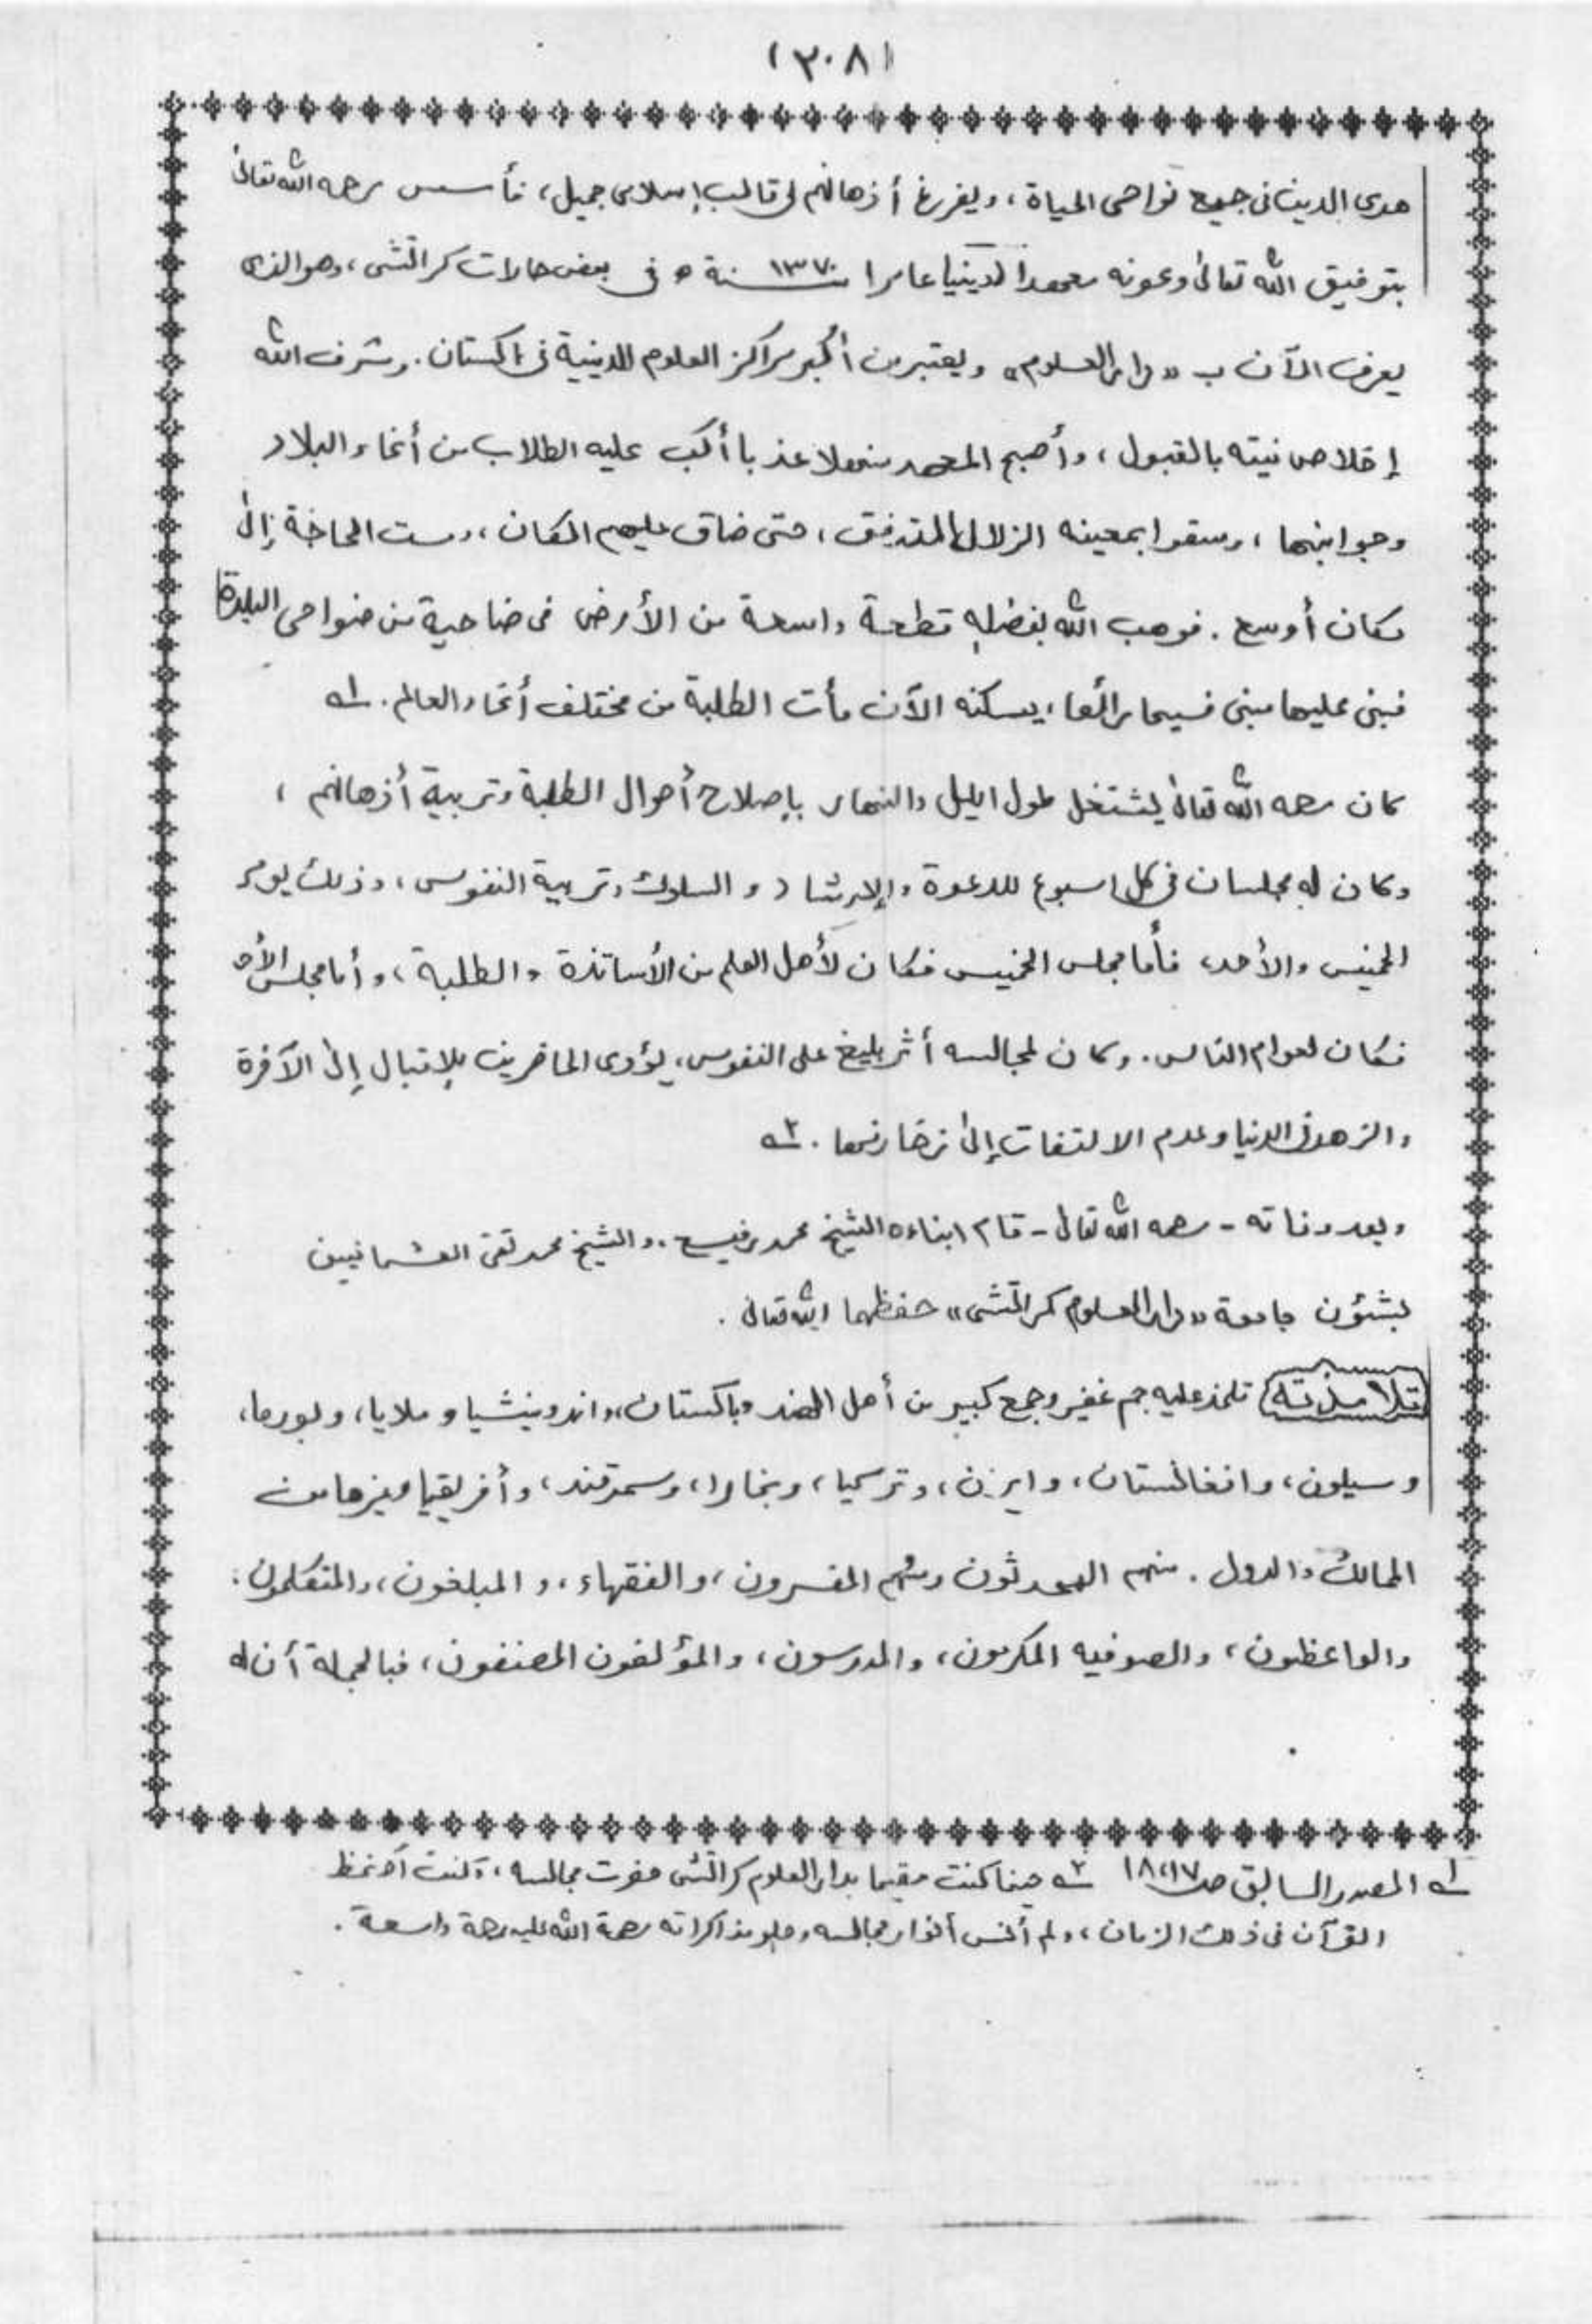 (٢٠٨)
هدى الدين فى جميع نواحى الحياة، ويفرغ أذهانهم فى قالب إسلامى جميل، فأسس رحمه الله تعالىٰ
بتوفيق الله تعالىٰ وعونه معهدا دينيا عامرا سنة ١٣٧٠ ه فى بعض حارات كراتشى، وهو الذى
يعرف الآن ب «دار العلوم» ويعتبر من أكبر مراكز العلوم الدينية فى باكستان. وشرف الله
إخلاص نيته بالقبول، وأصبح المعهد منهلا عذبا أكب عليه الطلاب من أنحاء البلاد
وجوانبها، وسقوا بمعينه الزلال المتدفق، حتى ضاق عليهم المكان، ومست الحاجة إلىٰ
مكان أوسع. فوهب الله بفضله قطعة واسعة من الأرض فى ضاحية من ضواحى البلدة
فبنى عليها مبنى فسيحا رائعا، يسكنه الآن مأت الطلبة من مختلف أنحاء العالم. ١ـه
كان رحمه الله تعالىٰ يشتغل طول اليل والنهار بإصلاح أحوال الطلبة وتربية أذهانهم،
وكان له مجلسان فى كل اسبوع للدعوة والإرشاد والسلوك وتربية النفوس، وذلك يوم
الخميس والأحد، فأما مجلس الخميس فكان لأهل العلم من الأساتذة والطلبة، وأما مجلس الأحد
فكان لعوام الناس. وكان لمجالسه أثر بليغ على النفوس، يؤدى الحاضرين للإقبال إلىٰ الآخرة
والزهد فى الدنيا وعدم الالتفات إلىٰ زخارفها. ٢ـه
وبعد وفاته - رحمه الله تعالىٰ - قام ابناءه الشيخ محمد رفيع، والشيخ محمد تقى العثمانيين
بشئون جامعة «دار العلوم كراتشى» حفظهما الله تعالىٰ.
تلامذته تلمذ عليه جم غفير وجمع كبير من أهل الهند وباكستان، واندونيشيا وملايا، وبورما،
وسيلون، وافغانستان، وايران، وتركيا، وبخارا، وسمرقند، وأفريقيا وغيرها من
الممالك والدول. منهم المحدثون ومنهم المفسرون، والفقهاء، و المبلغون، والمتكلمون،
والواعظون، والصوفيه المكرمون، والمدرسون، والمؤلفون المصنفون، فبالجملة أن له
١ـه المصدر السابق ص ١٧،١٨ ٢ـه حينما كنت مقيما بدار العلوم كراتشى حضرت مجالسه، وكنت أحفظ
القرآن فى ذلك الزمان، ولم أنس أنوار مجالسه وحلو مذاكراته رحمة الله عليه رحمة واسعة.